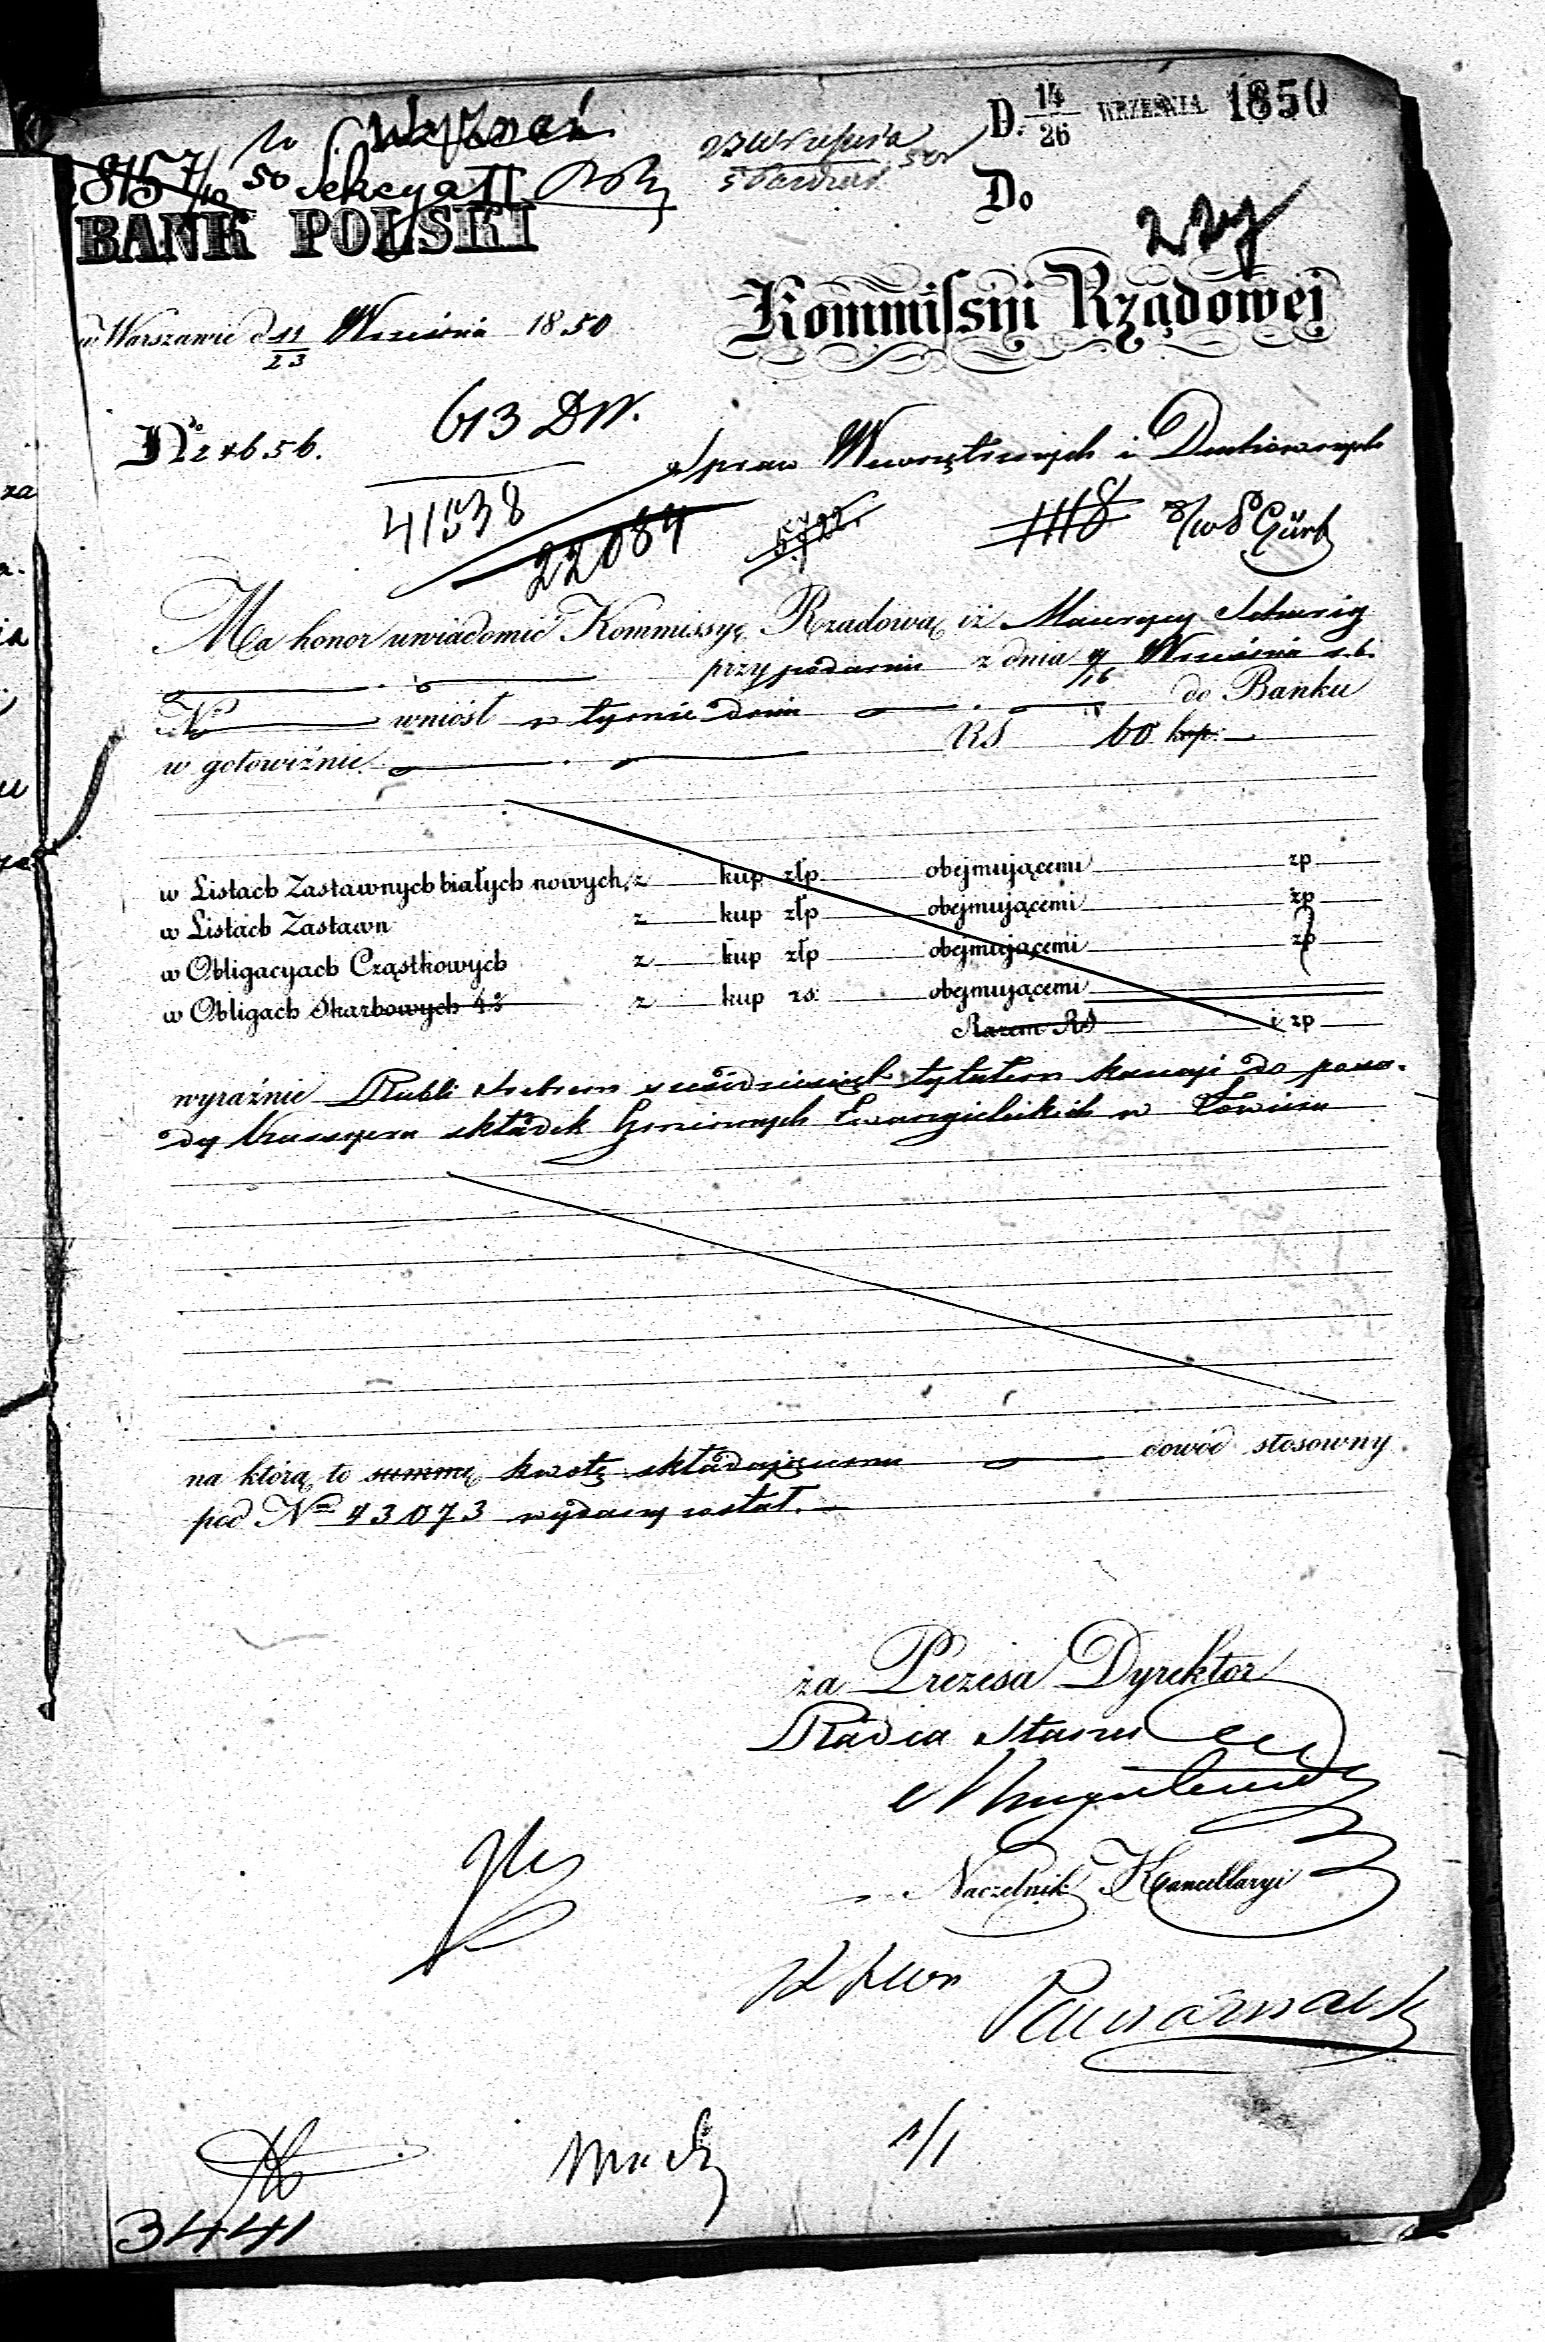 D. 14/26 WRZEŚNIA 1850
Wyznań
8157/10 50 Sekcya II
27 Września
5 50r
BANK POLSKI
Do
Kommissyi Rządowej
w Warszawie d 11/23 Września 1850
613 DW.
No 24656.
Spraw Wewnętrznych i Duchownych
41538
22084
5722.
1118
Ma honor uwiadomić Kommissyę Rządową iż Maurycy
przy podaniu z dnia 4/16 Września r.b.
No wniósł w tymże dniu do Banku
w gotowiźnie RS 60 kop:
w Listach Zastawnych białych nowych, z kup złp obejmującemi zp
w Listach Zastawn z kup złp obejmującemi zp
w Obligacyach Cząstkowych z kup złp obejmującemi zp
w Obligach Skarbowych 4% z kup rs: obejmującemi
Razem RS i zp
wyraźnie Rubli srebrem sześćdziesiąt tytułem kaucyi do posa-
dy Kassyera składek Gminnych Ewangielickich w
na którą to summę kwotę składającemu dowód stosowny
pod No 43073 wydany został.
za Prezesa Dyrektor
Radca Stanu
Naczelnik Kancellaryi
1/1
3441